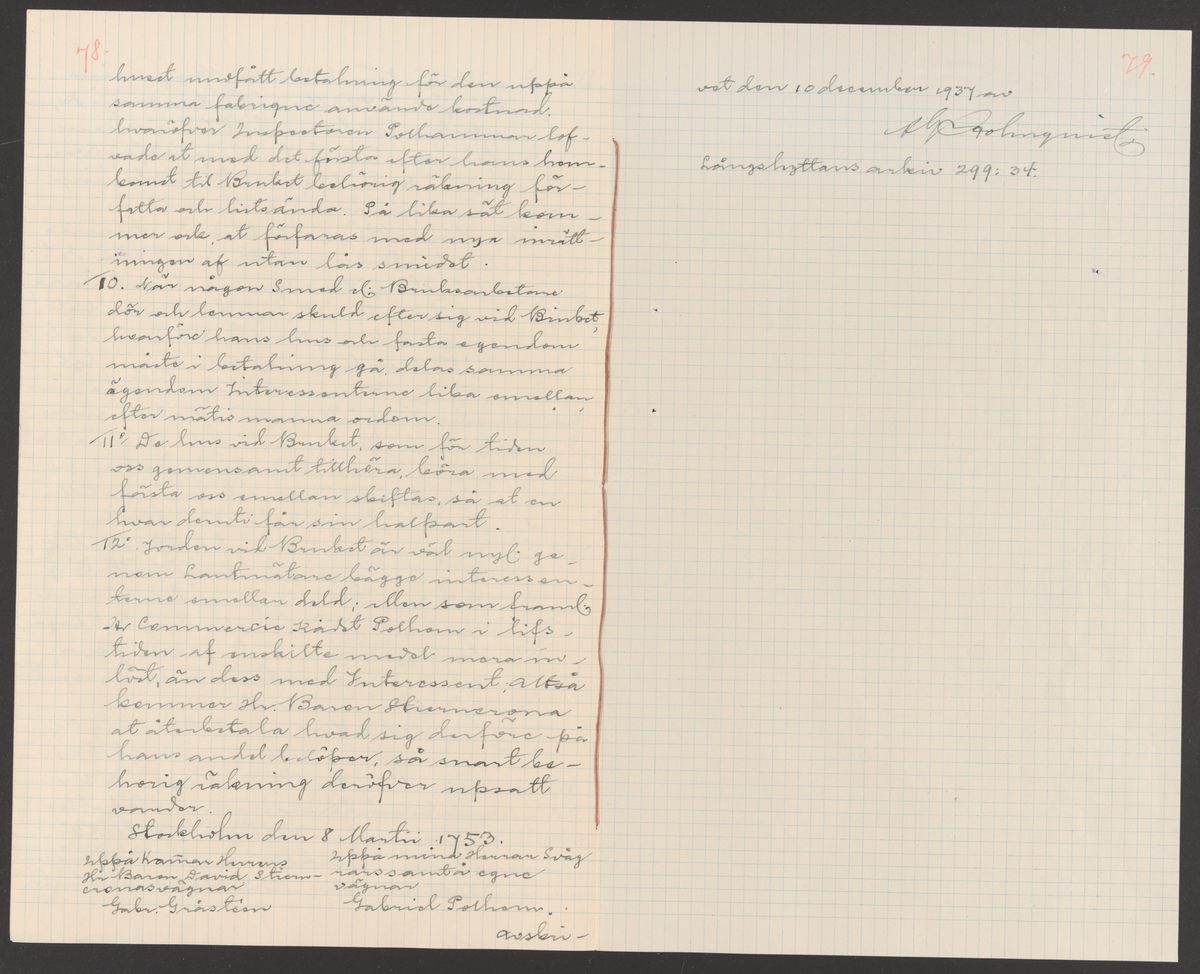 78.
huset undfått betalning för den uppå
samma fabrique använde kostnad.
hwaröfver Inspectoren Polhammar lof-
vade at med det första efter hans hem-
komst til Bruket behörig räkning för-
fatta och hitsända. På lika sät kom-
mer ock at förfaras med nya inrätt-
ningen af utan lås smidet.
10. När någon Smed el: Bruksarbetare
dör och lemnar skuld efter sig vid Bruket,
hvarföre hans hus och fasta egendom
måste i betalning gå, delas samma
ägendom Interessenterne lika emellan,
efter mätismanna ordom.
11° De hus vid Bruket, som för tiden
oss gemensamt tillhöra, böra med
första oss emellan skiftas, så at en
hvar deruti får sin halfpart.
12° Jorden vid Bruket är väl nyl: ge-
nom Lantmätare bägge interessen-
terne emellan deld; Men som framl:
Hr Commercie Rådet Polhem i lifs-
tiden af enskilte medel mera in-
löst, än dess med Interessent; Altså
kommer Hr. Baron Stiernerona
at återbetala hvad sig derföre på
hans andel belöper, så snart be-
horig räkning deröfver upsatt
varder.
Stockholm den 8 Martii 1753.
Uppå Kam̄ar Herrens
Hr Baron David Stiern-
cronas vägnar
Gabr. Gråstéen
Uppå mina Herrar Svåg
rars samt å egne
vägnar
Gabriel Polhem.
avskri-
79.
vet den 10 december 1937 av
Holmqvist
Långshyttans arkiv 299: 34.